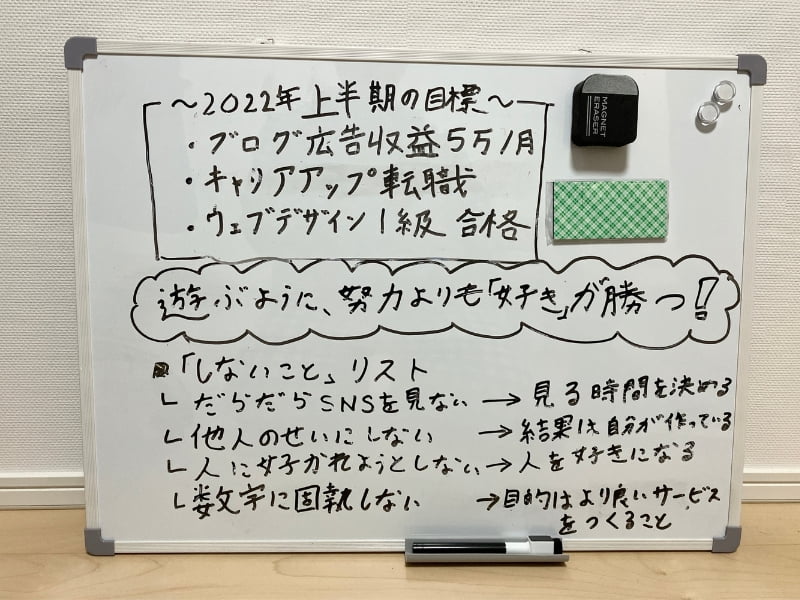 ～2022年上半期の目標～
・ブログ広告収益5万/月
・キャリアアップ転職
・ウェブデザイン1級 合格
遊ぶように、努力よりも「好き」が勝つ!
■「しないこと」リスト
└ だらだらSNSを見ない → 見る時間を決める
└ 他人のせいにしない → 結果は自分が作っている
└ 人に好かれようとしない → 人を好きになる
└ 数字に固執しない → 目的はより良いサービス
をつくること
MAGNET
ERASER